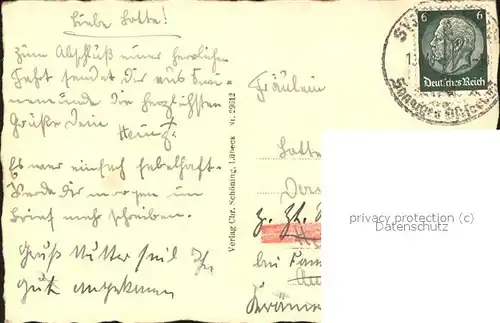 Liebe Lotte!
Zum Abschluß einer herrlichen
Fahrt sendet dir aus Swi-
nemünde die herzlichsten
Grüße dein
Heinz.
Es war einfach fabelhaft.
Werde dir morgen im
Brief mehr schreiben.
Gruß Mutter
gut angekommen
Verlag Chr. Schöning, Lübeck Nr. 29612
Fräulein
Lotte
z. Zt.
bei Fam
6 6
Deutsches Reich
privacy protection (c)
Datenschutz